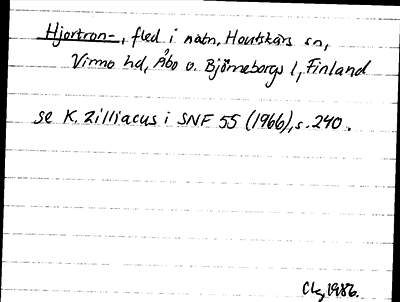 Hjortron-, fled i natn, Houtskärs sn,
Virmo hd, Åbo o. Björneborgs l, Finland
se K. Zilliacus i SNF 55 (1966), s. 240.
1986.